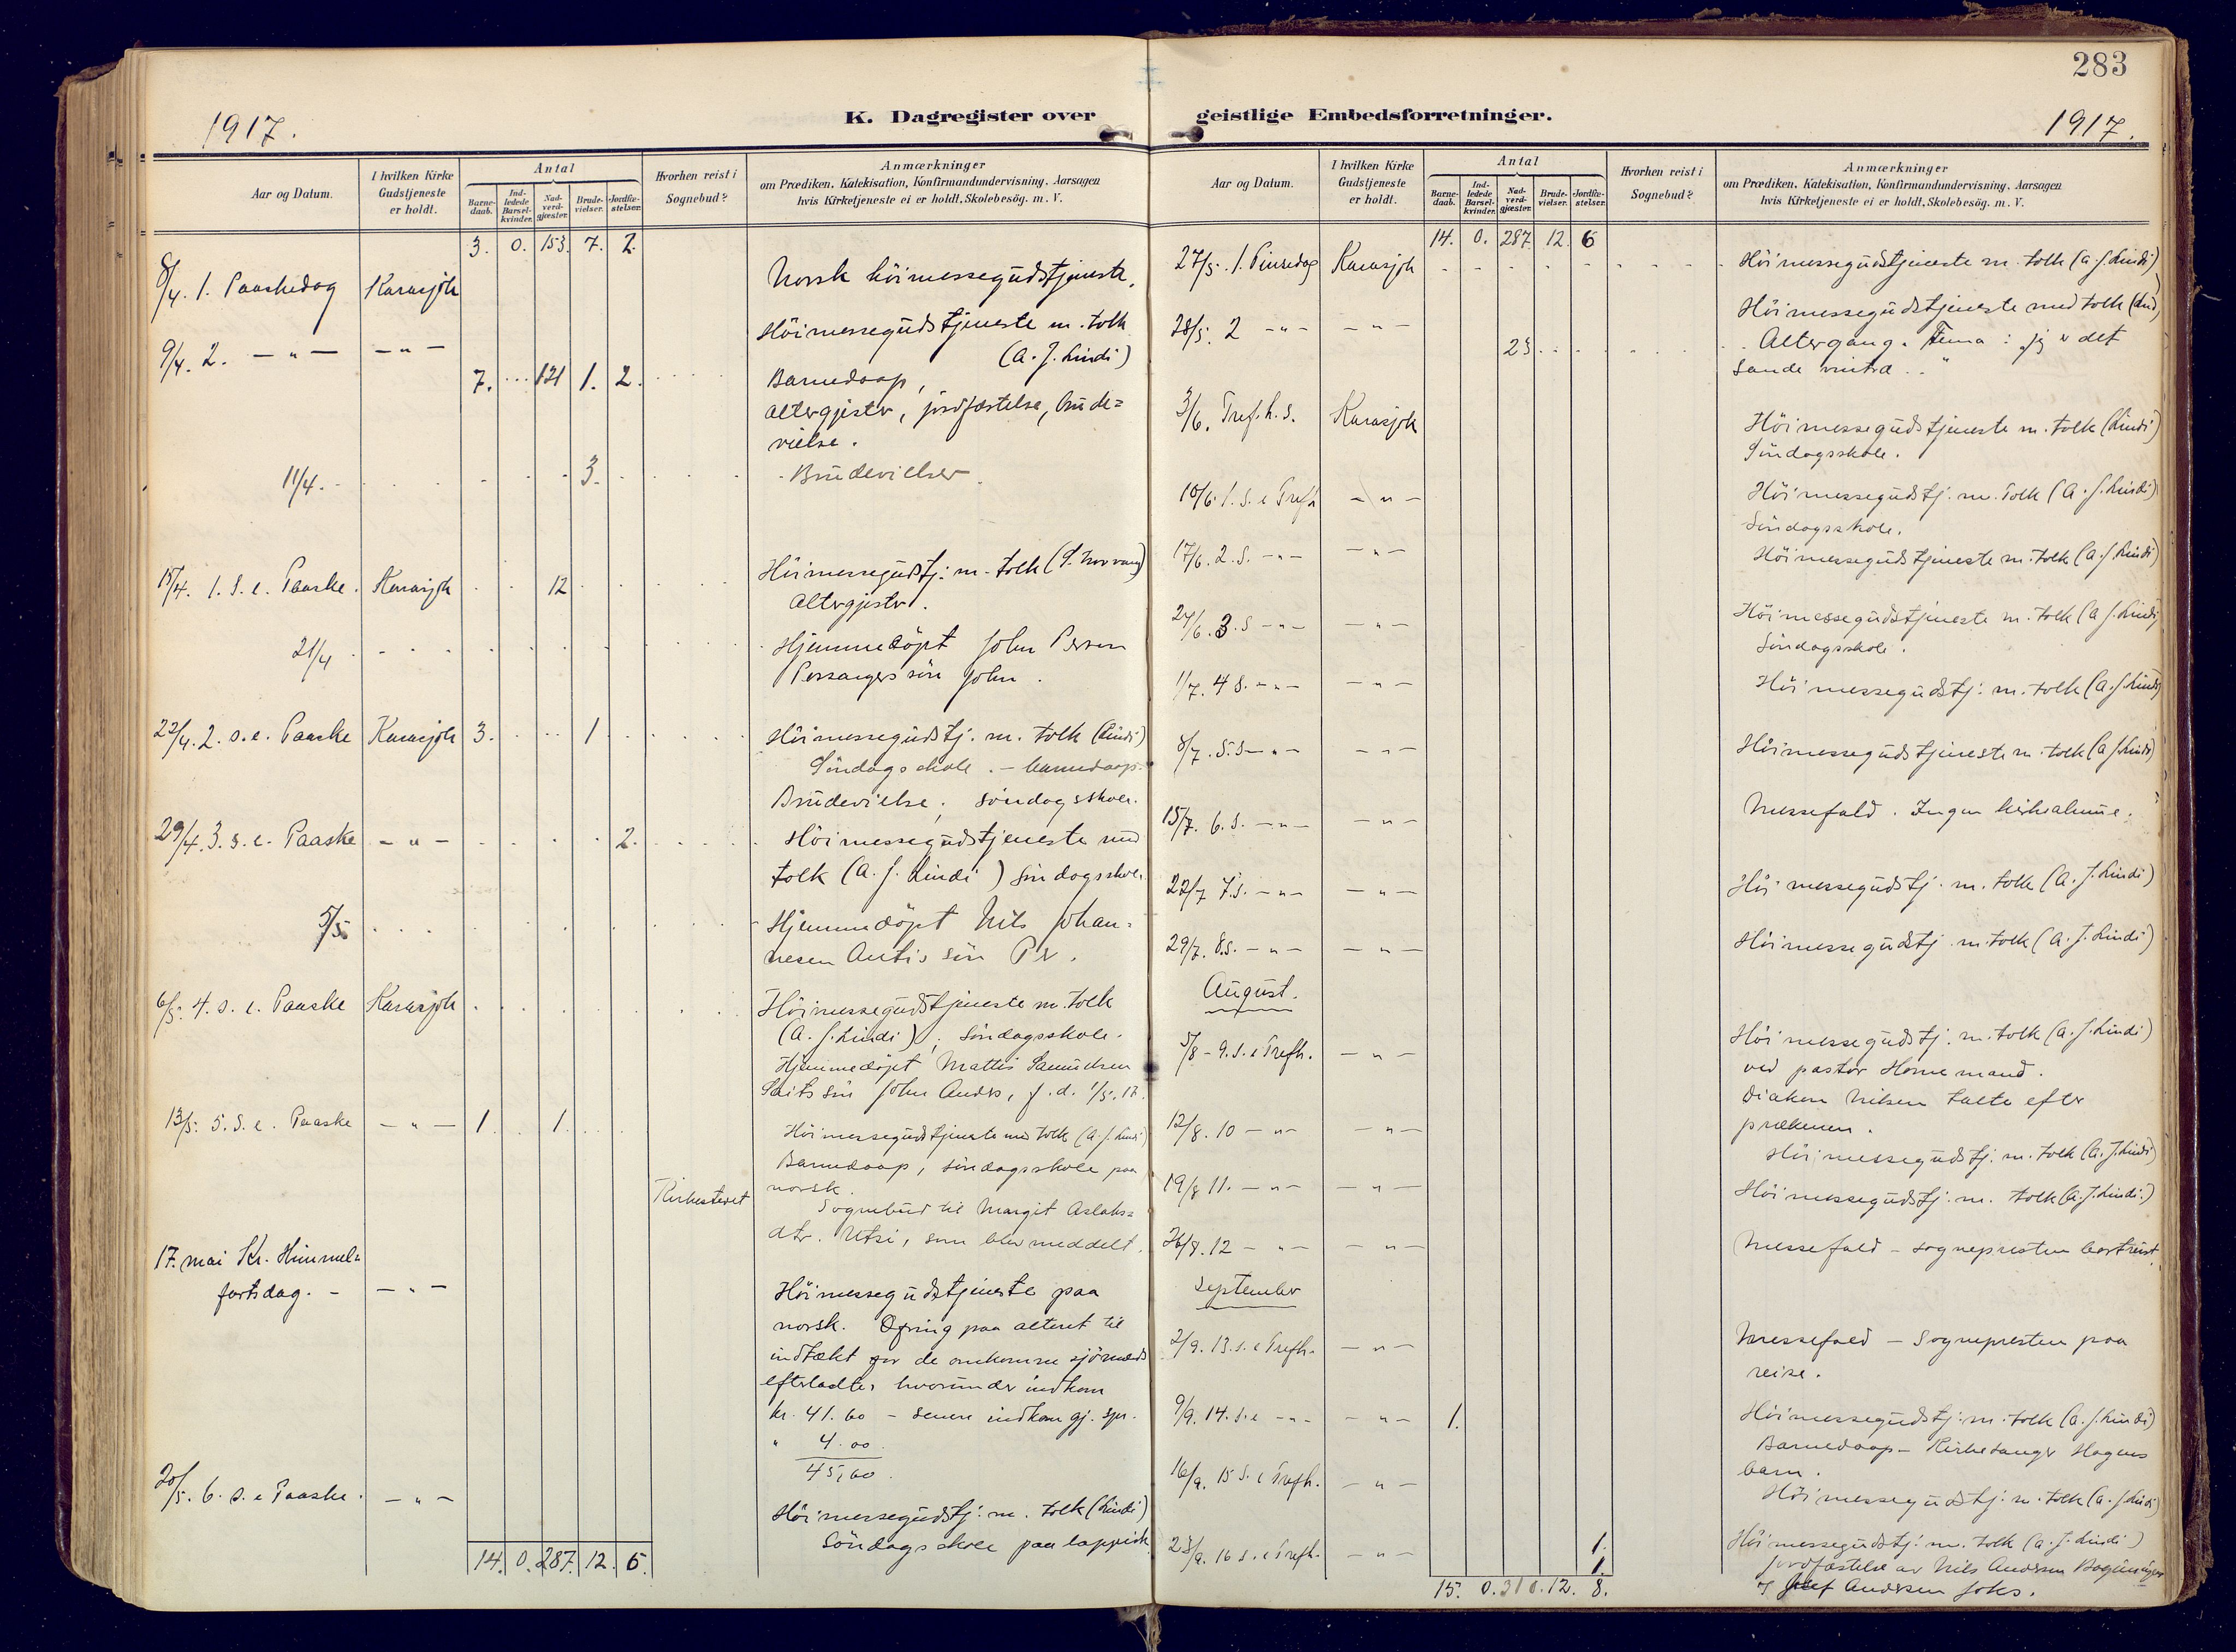 283
1917.
K. Dagregister over
Aar og Datum.
I hvilken Kirke Gudstjeneste er holdt.
Antal
Barne-daab.
Ind-ledede Barsel-kvinder.
Nad-verd-gjæster.
Brude-vielser.
Jordfæ-stelser.
Hvorhen reist i Sognebud?
Anmærkninger
om Prædiken, Katekisation, Konfirmandundervisning, Aarsagen
hvis Kirketjeneste ei er holdt, Skolebesög. m. V.
3. 0. 153. 7. 2.
8/4. 1. Paaskedag Karasjok Norsk höimessegudstjeneste.
9/4. 2. — " — — " — Höimessegudstjeneste m. tolk
(A. J. Lindi)
7. ... 121 1. 2. Barnedaap,
altergjester, jordfæstelse, brude=
vielse.
11/4. 3. Brudevielser.
15/4. 1. S. e. Paaske. Karasjok 12 Höimessegudstj. m. tolk
Altergjester.
21/4 Hjemmedöpt John Persen
Porsangers sön John.
22/4. 2. s. e. Paaske Karasjok 3. 1 Höimessegudstj. m. tolk (Lindi)
Söndagsskole. — barnedaap.
Brudevielse, söndagsskole.
29/4. 3. s. e. Paaske — " — 2. Höimessegudstjeneste med
tolk (A. J. Lindi) söndagsskole.
5/5. Hjemmedöpt Nils Johan=
nesen Antis sön Per.
6/5. 4. s. e. Paaske Karasjok Höimessegudstjeneste m. tolk
(A. J. Lindi), söndagsskole.
Hjemmedöpt Mattis Samuelsen
sön John Anders, f. d. 1/5. 17.
13/5. 5. S. e. Paaske — " — 1. 1. Höimessegudstjeneste med tolk (A. J. Lindi)
Barnedaap, söndagsskole paa
norsk.
Kirkestedet Sognebud til Margit Aslaks=
dtr. Utsi, som blev meddelt.
17. mai Kr. Himmel=
fartsdag. — — " — Höimessegudstjeneste paa
norsk. Ofring paa alteret til
indtækt for de omkomne sjömænds
efterladte, hvorunder indkom
kr. 41.60 – senere indkom gj. spr.
" 4.00.
45,60.
20/5. 6. s. e Paaske. — " — Höimessegudstj. m. tolk (Lindi)
Söndagsskole paa lappisk.
14. 0. 287. 12. 6.
geistlige Embedsforretninger.
1917.
Aar og Datum.
I hvilken Kirke Gudstjeneste er holdt.
Antal
Barne-daab.
Ind-ledede Barsel-kvinder.
Nad-verd-gjæster.
Brude-vielser.
Jordfæ-stelser.
Hvorhen reist i Sognebud?
Anmærkninger
om Prædiken, Katekisation, Konfirmandundervisning, Aarsagen
hvis Kirketjeneste ei er holdt, Skolebesög. m. V.
14. 0. 287. 12. 6
27/5. 1. Pinsedag Karasjok Höimessegudstjeneste m. tolk (A. J. Lindi)
28/5. 2 — " — — " — Höimessegudstjeneste med tolk
23 Altergang. Tema: "Jeg er det
sande vintræ.."
3/6. Tref. h. s. Karasjok Höimessegudstjeneste m. tolk (Lindi)
Söndagsskole.
10/6. 1. S. e Trefh — " — Höimessegudstj. m. Tolk (A. J. Lindi)
Söndagsskole.
17/6. 2. S. — " — — " — Höimessegudstjeneste m. tolk (A. J. Lindi)
24/6. 3. S — " — — " — Höimessegudstjeneste m. tolk (A J. Lindi)
Söndagsskole.
1/7. 4 S. — " — — " — Höimessegudstj. m. tolk (A. J. Lindi)
8/7. 5. S — " — — " — Höimessegudstjeneste m. tolk (A J. Lindi)
15/7. 6. S. — " — — " — Messefald. Ingen kirkealmue.
22/7 7. S. — " — — " — Höimessegudstj. m. tolk (A. J. Lindi)
29/7. 8. S. — " — — " — Höimessegudstj m. tolk (A. J. Lindi)
August.
5/8 – 9. S. e Trefh. — " — Höimessegudstj. m. tolk (A. J. Lindi)
ved pastor Hornemand.
Diakon Nilsen talte efter
prækenen.
12/8. 10 — " — — " — Höimessegudstj. m. tolk (A. J. Lindi)
19/8 11. — " — — " — Höimessegudstj. m. tolk (A. J. Lindi.)
26/8. 12 — " — — " — Messefald – sognepresten bortreist.
September
2/9. 13. s. e Trefh. — " — Messefald – Sognepresten paa
reise.
9/9. 14. S. e — " — — " — 1. Höimessegudstj. m. tolk (A. J. Lindi)
Barnedaap – Kirkesanger Hagens
barn.
16/9. 15 S. e Trefh. — " — Höimessegudstj. m. tolk (A. J. Lindi)
23/9. 16 s. e Trefh. — " — 1. Höimessegudstj. m. tolk (A. J. Lindi)
1. Jordfæstelse av Nils Andersen
og Andersen Joks.
15. 0. 310. 12. 8.